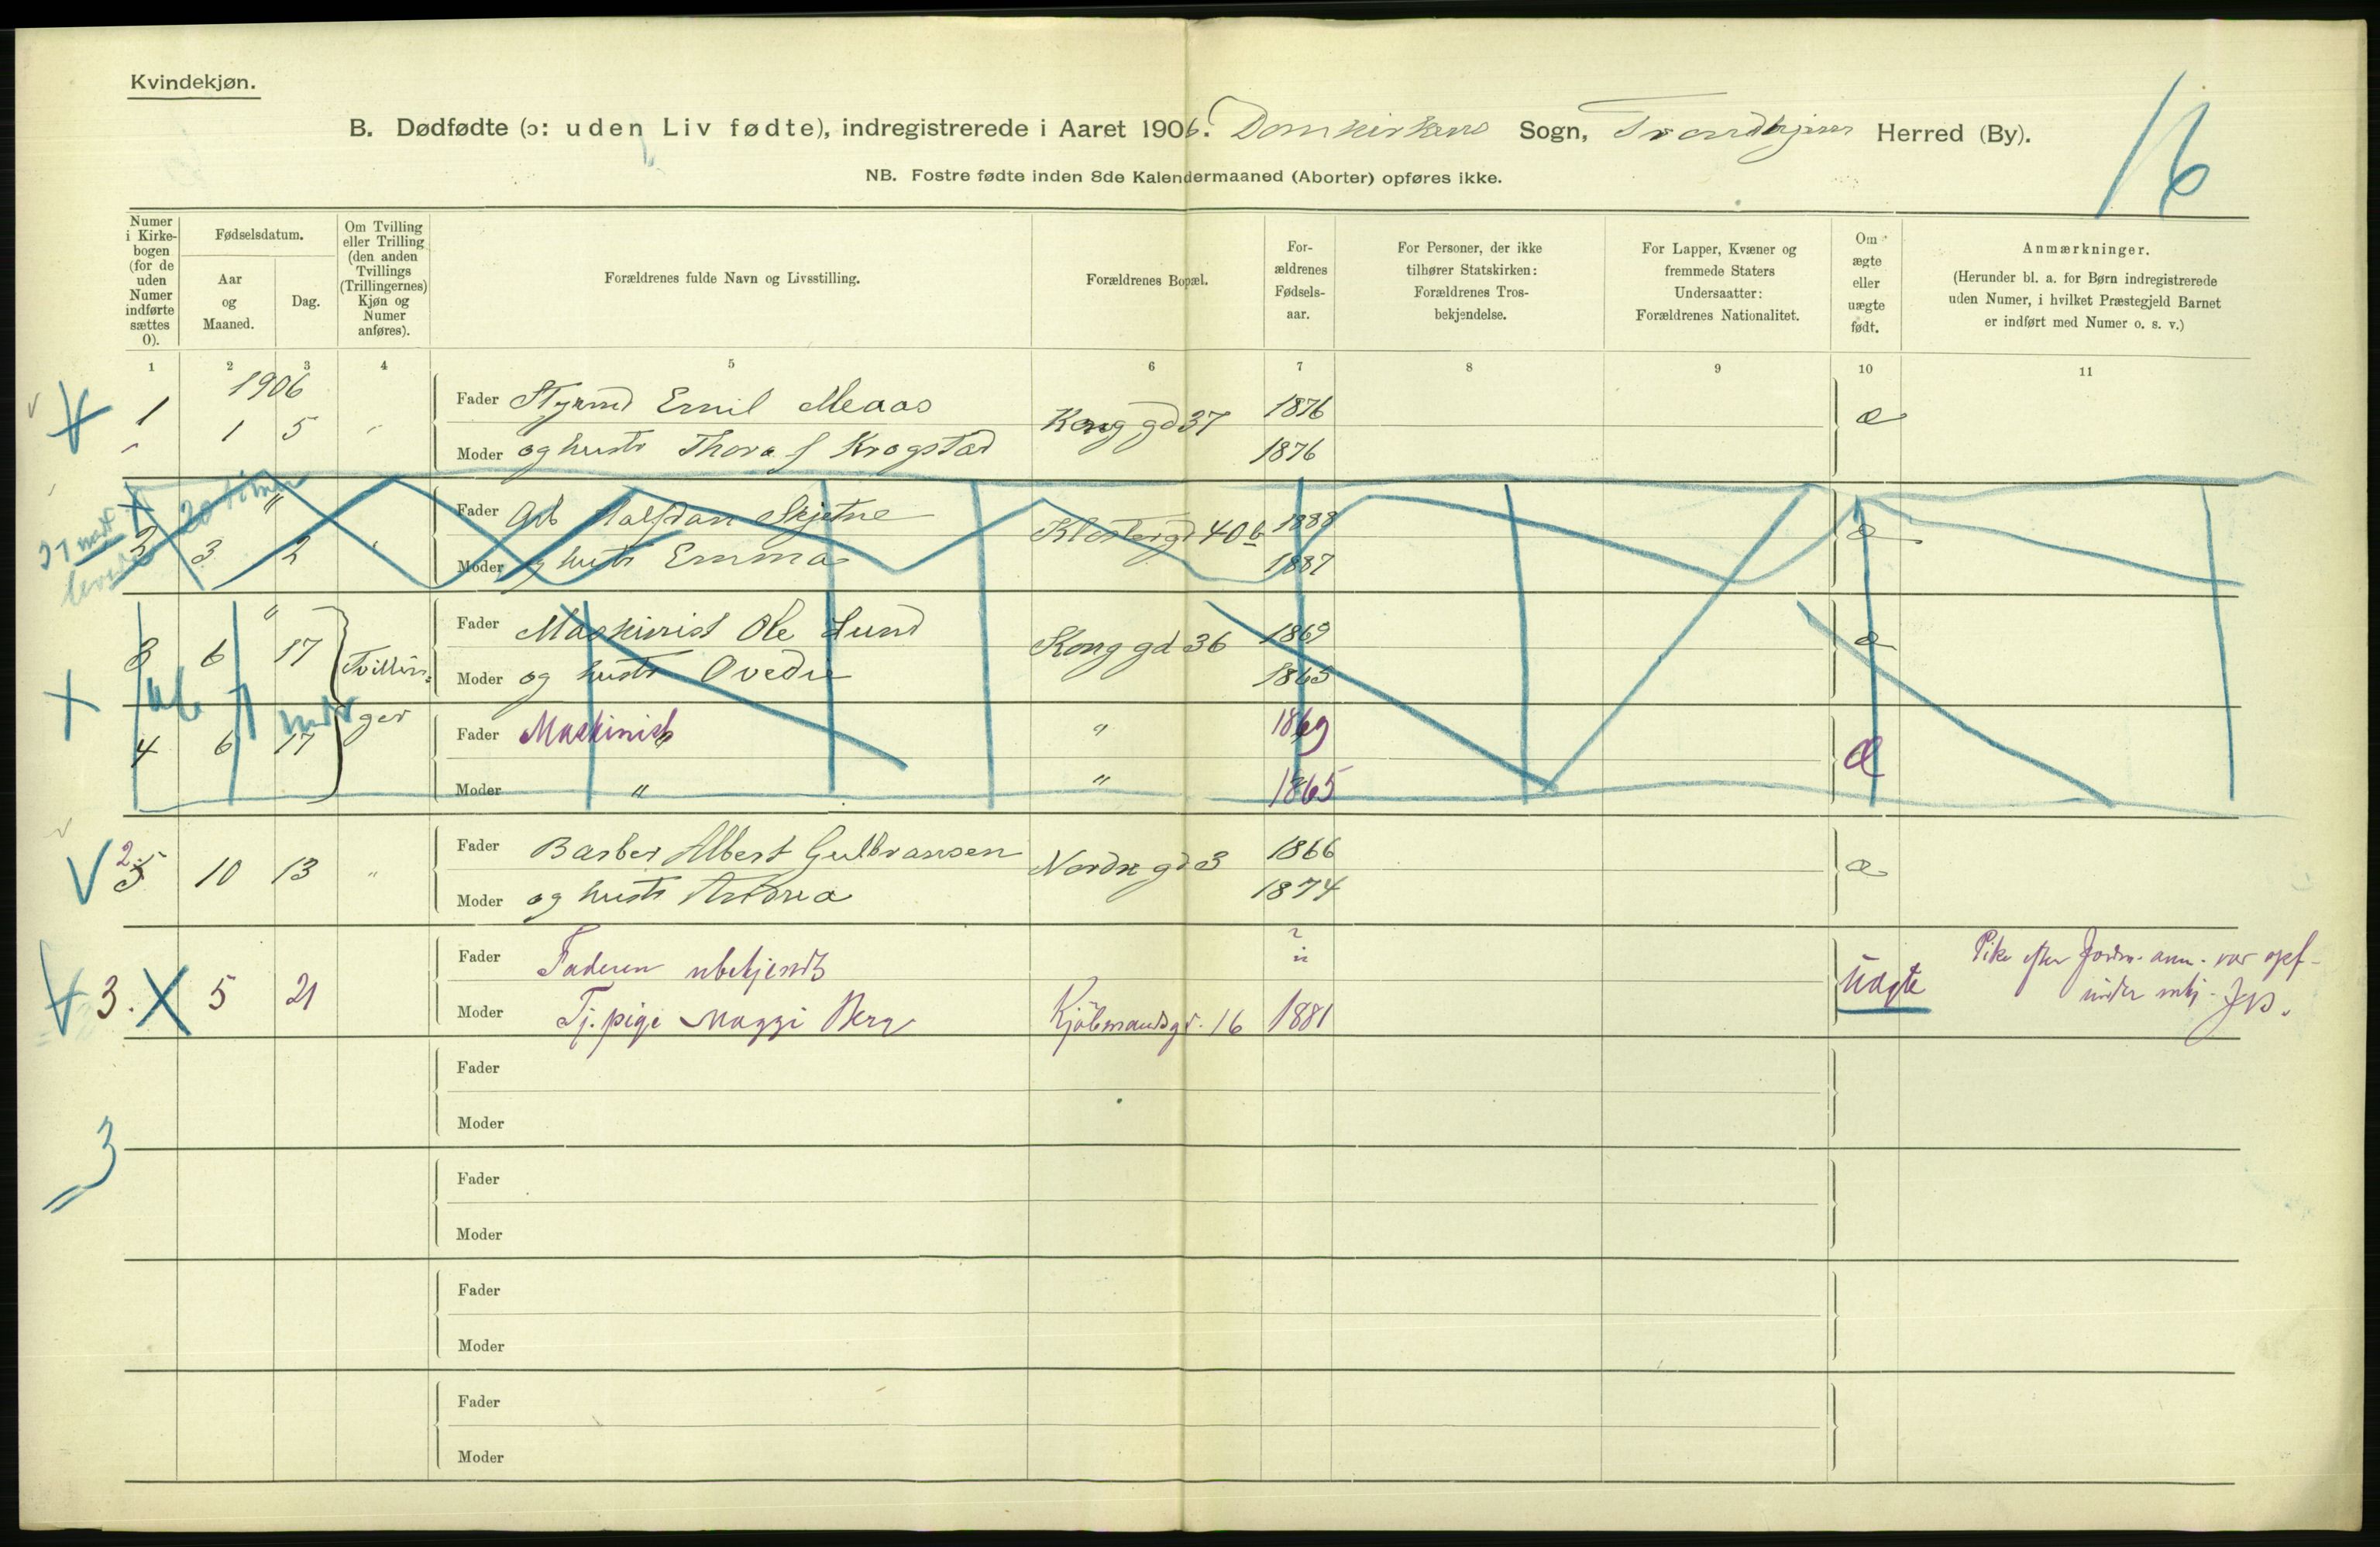 Kvindekjøn.
B. Dødfødte (ɔ: uden Liv fødte), indregistrerede i Aaret 1906. Domkirkens Sogn, Trondhjem Herred (By).
16
NB. Fostre fødte inden 8de Kalendermaaned (Aborter) opføres ikke.
Numer i Kirkebogen (for de uden Numer indførte sættes 0).
Fødselsdatum.
Aar og Maaned.
Dag.
Om Tvilling eller Trilling (den anden Tvillings (Trillingernes) Kjøn og Numer anføres).
Forældrenes fulde Navn og Livsstilling.
Forældrenes Bopæl.
For-ældrenes Fødsels-aar.
For Personer, der ikke tilhører Statskirken: Forældrenes Tros-bekjendelse.
For Lapper, Kvæner og fremmede Staters Undersaatter: Forældrenes Nationalitet.
Om ægte eller uægte født.
Anmærkninger.
(Herunder bl. a. for Børn indregistrerede uden Numer, i hvilket Præstegjeld Barnet er indført med Numer o. s. v.)
1 2 3 4 5 6 7 8 9 10 11
1906
1 1 5 " Fader Styrmd Emil Meaas Kong gd 37 1876 æ
Moder og hustr Thora J Krogstad 1876
20 timer
2 3 " 2 " Fader Arb Halfdan Skjetne Klostergd 40 b 1888 æ
Moder og hustr Emma 1887
3 6 " 17 Tvillin= Fader Maskinist Ole Lund Kong gd 36 1869 æ
Moder og hustr Ovedie 1865
4 6 17 ger Fader Maskinist " 1869 Æ
Moder " " 1865
2 5 10 13 " Fader Barber Albert Gulbransen Nordre gd 3 1866 æ
Moder og hustr Antona 1874
3. X 5 21 Fader Faderen ubekjendt ? Uægte
Moder Tj. pige Maggi Berg Kjöbmandsgd. 16 1881
Pike efter Jordm. anm. var opf-
under mkj. JVS.
Fader
Moder
3
Fader
Moder
Fader
Moder
Fader
Moder